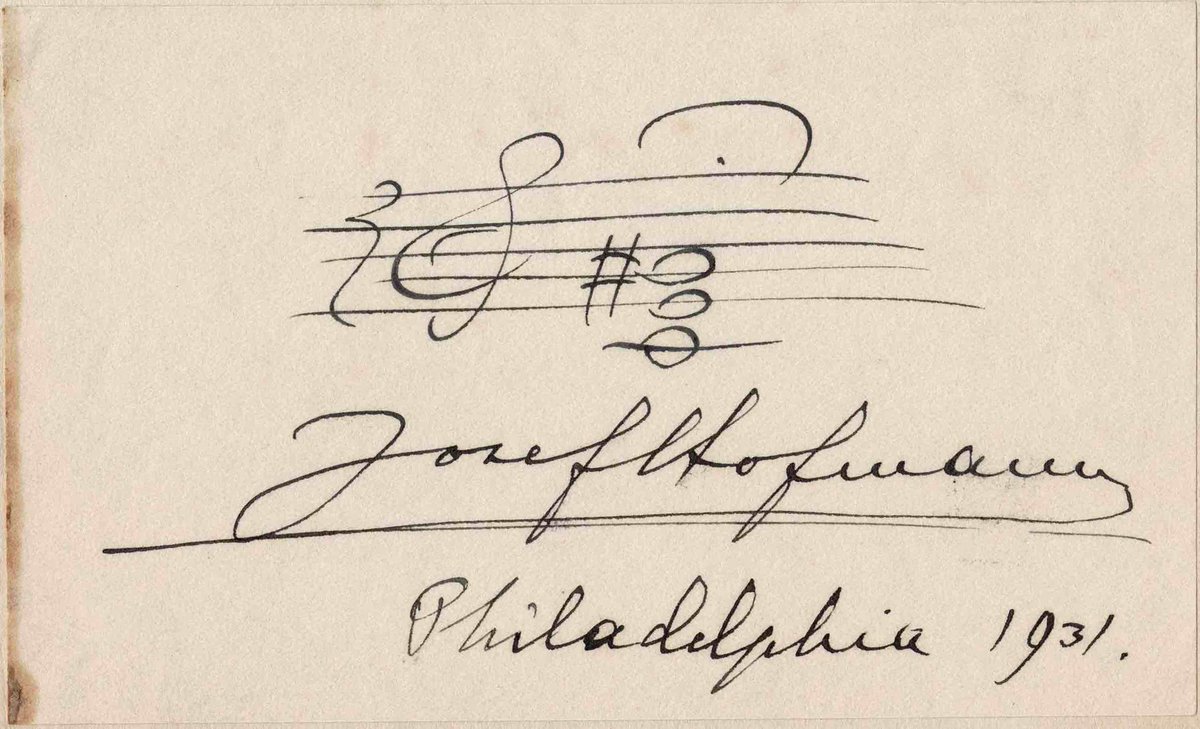 Josef Hofmann
Philadelphia 1931.